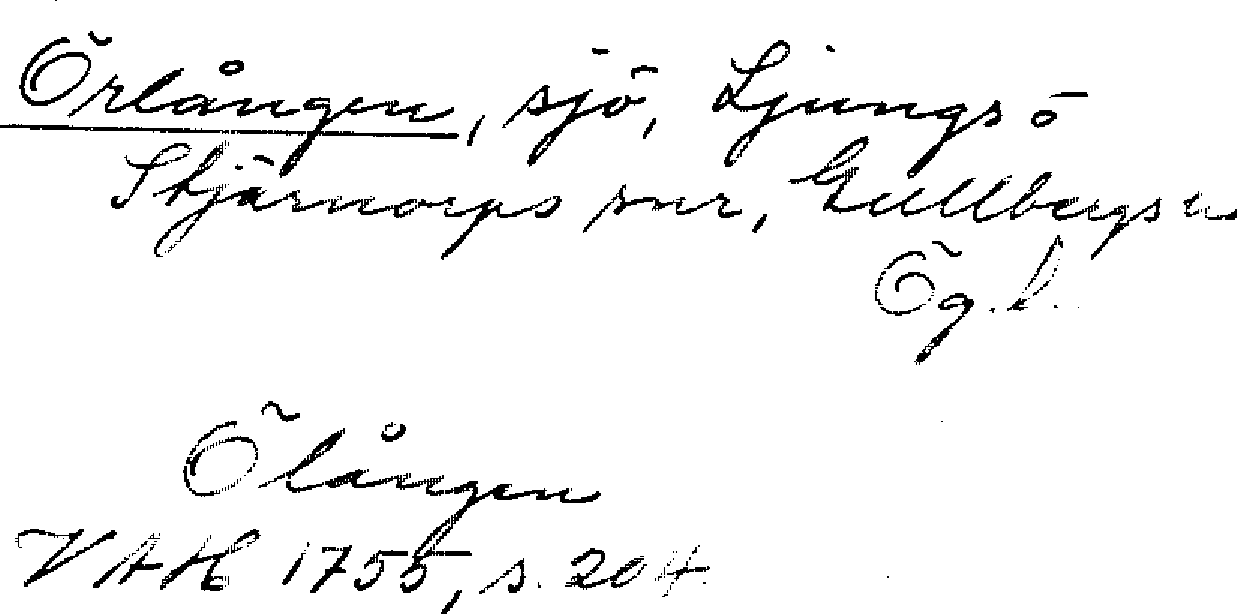 Örlången, sjö, Ljungs o
Stjärnorps snr, Gullbergs
Ög. l.
Ölången
VAH 1755, s. 204